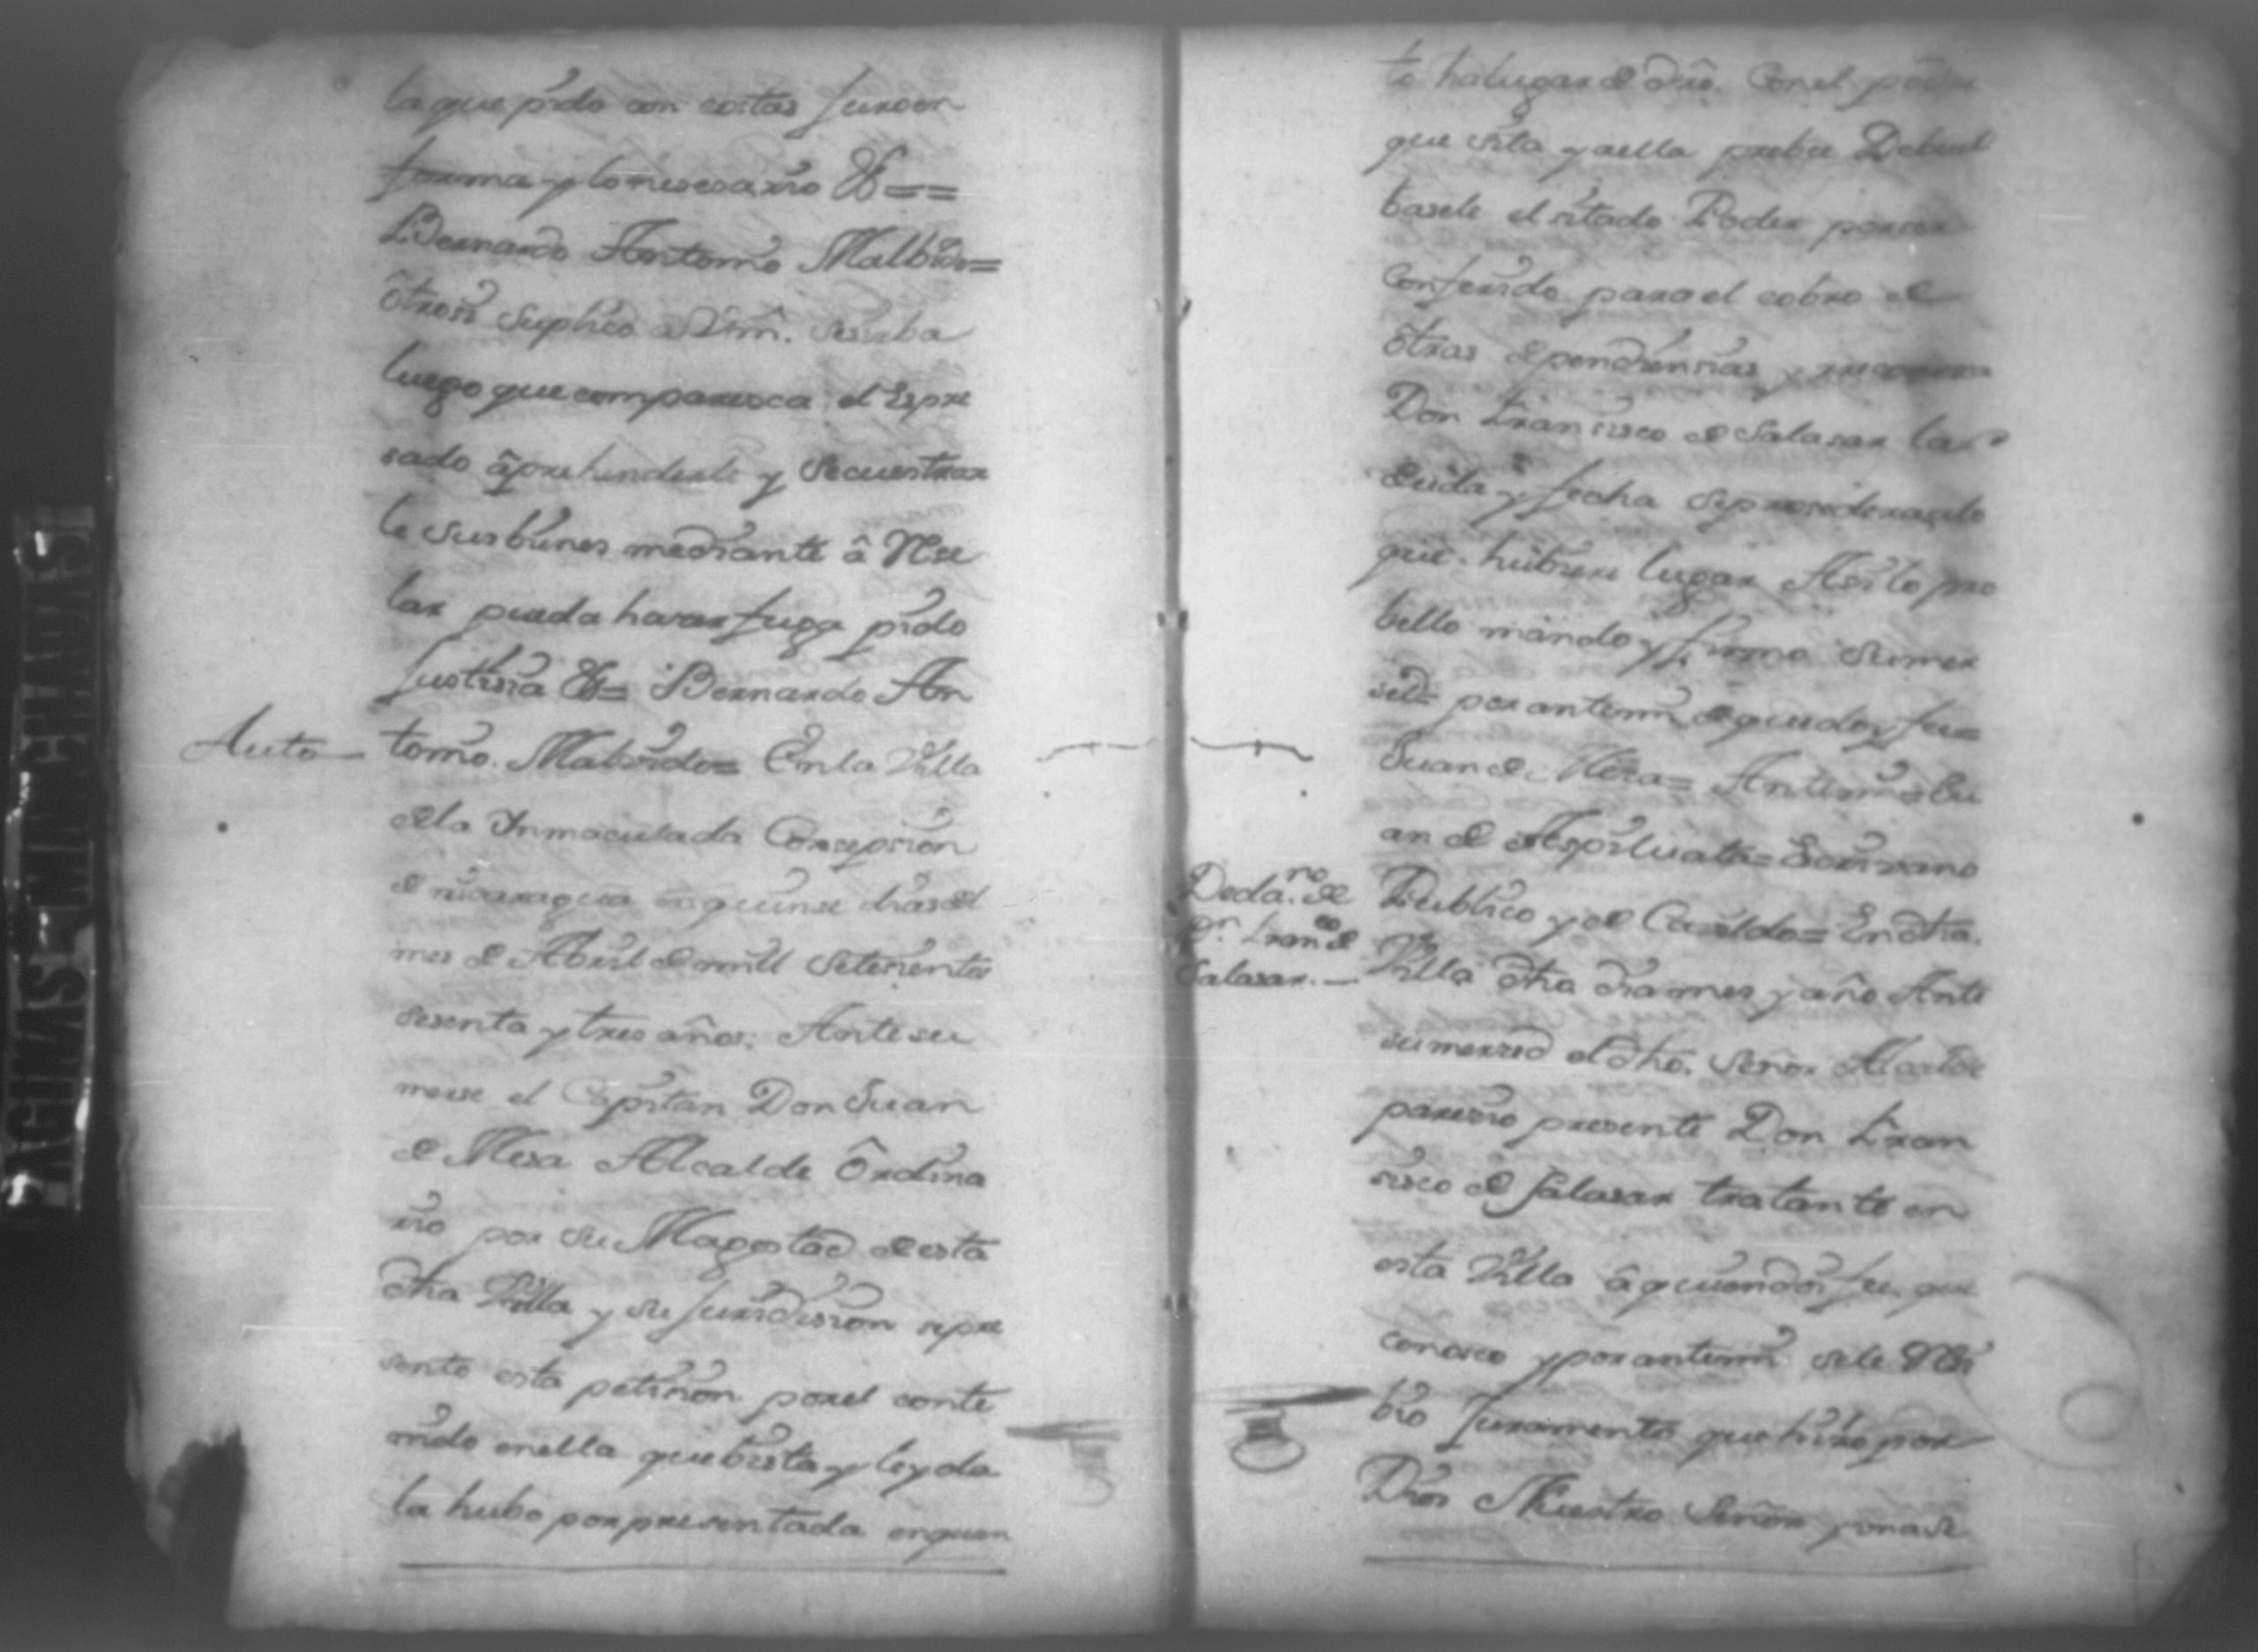 la que pido con costas Juro en
forma y lo nesesario &==
Bernardo Antonio Malbido=
ôtrosi Suplico a Vm̂. sesirba
luego que comparesca el Espre
sado âprehenderle y Secuestrar
le sus bienes mediante â Rese
lar pueda haser fuga pido
Justisia &= Bernardo An
Auto
tonio. Malvido= En la Villa
de la Ynmaculada Consepsion
de nicaragua en quinse dias del
mes de Abril de mill Setesientos
sesenta y tres años: Ante su
merse el Capitan Don Juan
de Mesa Alcalde Ôrdina
rio por su Magestad de esta
dha Villa y su Jurisdision se pre
sento esta petision por el conte
nido en ella que bista y leyda
la hubo por presentada en quan
to ha lugar de dro. Con el poder
que sita y a ella probee Debuel
basele el sitado Poder por ser
Conferido para el cobro de
ôtras dependensias y
Don Fransisco de Salasar la
deuda y fecha se prosedera a lo
que hubiere lugar Asi lo pro
bello mando y firmo su mer
sed= por antemi de que doy fee=
Juan de Mesa= Antemi Ju
an de Aespiluata= Escrivano
Declar.no de
Dn. Franco de
Salasar.—
Publico y de Cavildo= En dha.
Villa dho dia mes y año Ante
su mersed el dho. Señor Alcalde
paresio presente Don Fran
sisco de Salasar tratante en
esta Villa â quien doi fee que
conosco y por antemi se le Resi
bio Juramento que hizo por
Dios Nuestro Señor
PAGUMS - MITCHAUAS